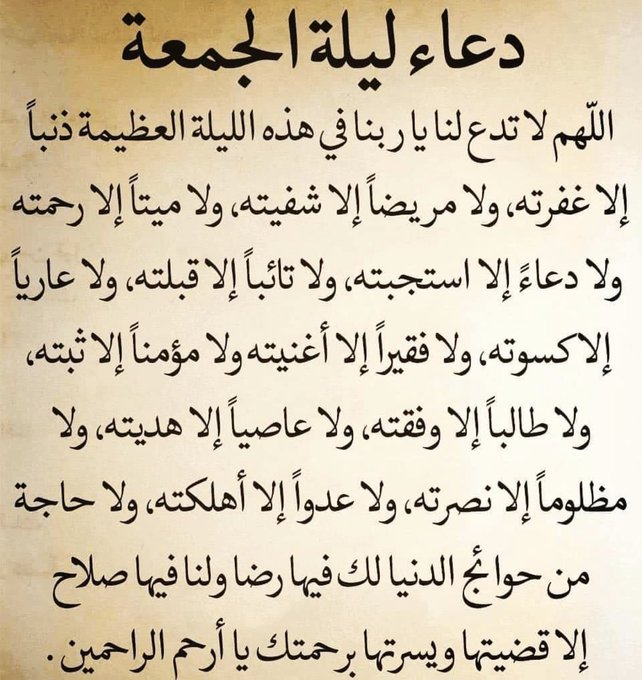 دعاء ليلة الجمعة
اللّهم لا تدع لنا يا ربنا في هذه الليلة العظيمة ذنباً
إلا غفرته، ولا مريضاً إلا شفيته، ولا ميتاً إلا رحمته
ولا دعاءً إلا استجبته، ولا تائباً إلا قبلته، ولا عارياً
إلا كسوته، ولا فقيراً إلا أغنيته ولا مؤمناً إلا ثبته،
ولا طالباً إلا وفقته، ولا عاصياً إلا هديته، ولا
مظلوماً إلا نصرته، ولا عدواً إلا أهلكته، ولا حاجة
من حوائج الدنيا لك فيها رضا ولنا فيها صلاح
إلا قضيتها ويسرتها برحمتك يا أرحم الراحمين .